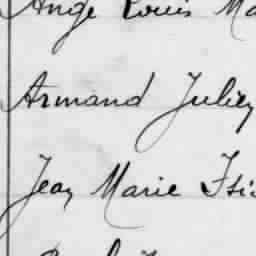 Ange Louis Ma
Armand Julien
Jean Marie Isi